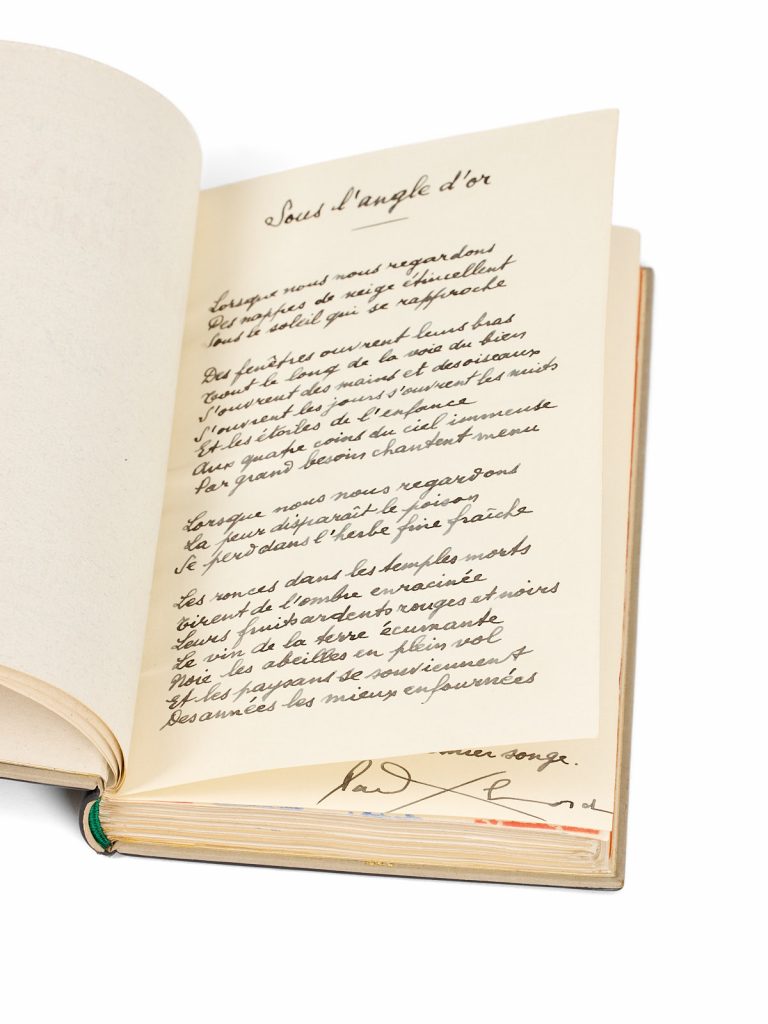 Sous l'angle d'or
Lorsque nous nous regardons
Des nappes de neige étincellent
Sous le soleil qui se rapproche
Des fenêtres ouvrent leurs bras
Tout le long de la voie du bien
S'ouvrent des mains et des oiseaux
S'ouvrent les jours s'ouvrent les nuits
Et les étoiles de l'enfance
Aux quatre coins du ciel immense
Par grand besoin chantent menu
Lorsque nous nous regardons
La peur disparaît le poison
Se perd dans l'herbe fine fraîche
Les ronces dans les temples morts
Tirent de l'ombre enracinée
Leurs fruits ardents rouges et noirs
Le vin de la terre écumante
Noie les abeilles en plein vol
Et les paysans se souviennent
Des années les mieux enfournées
songe.